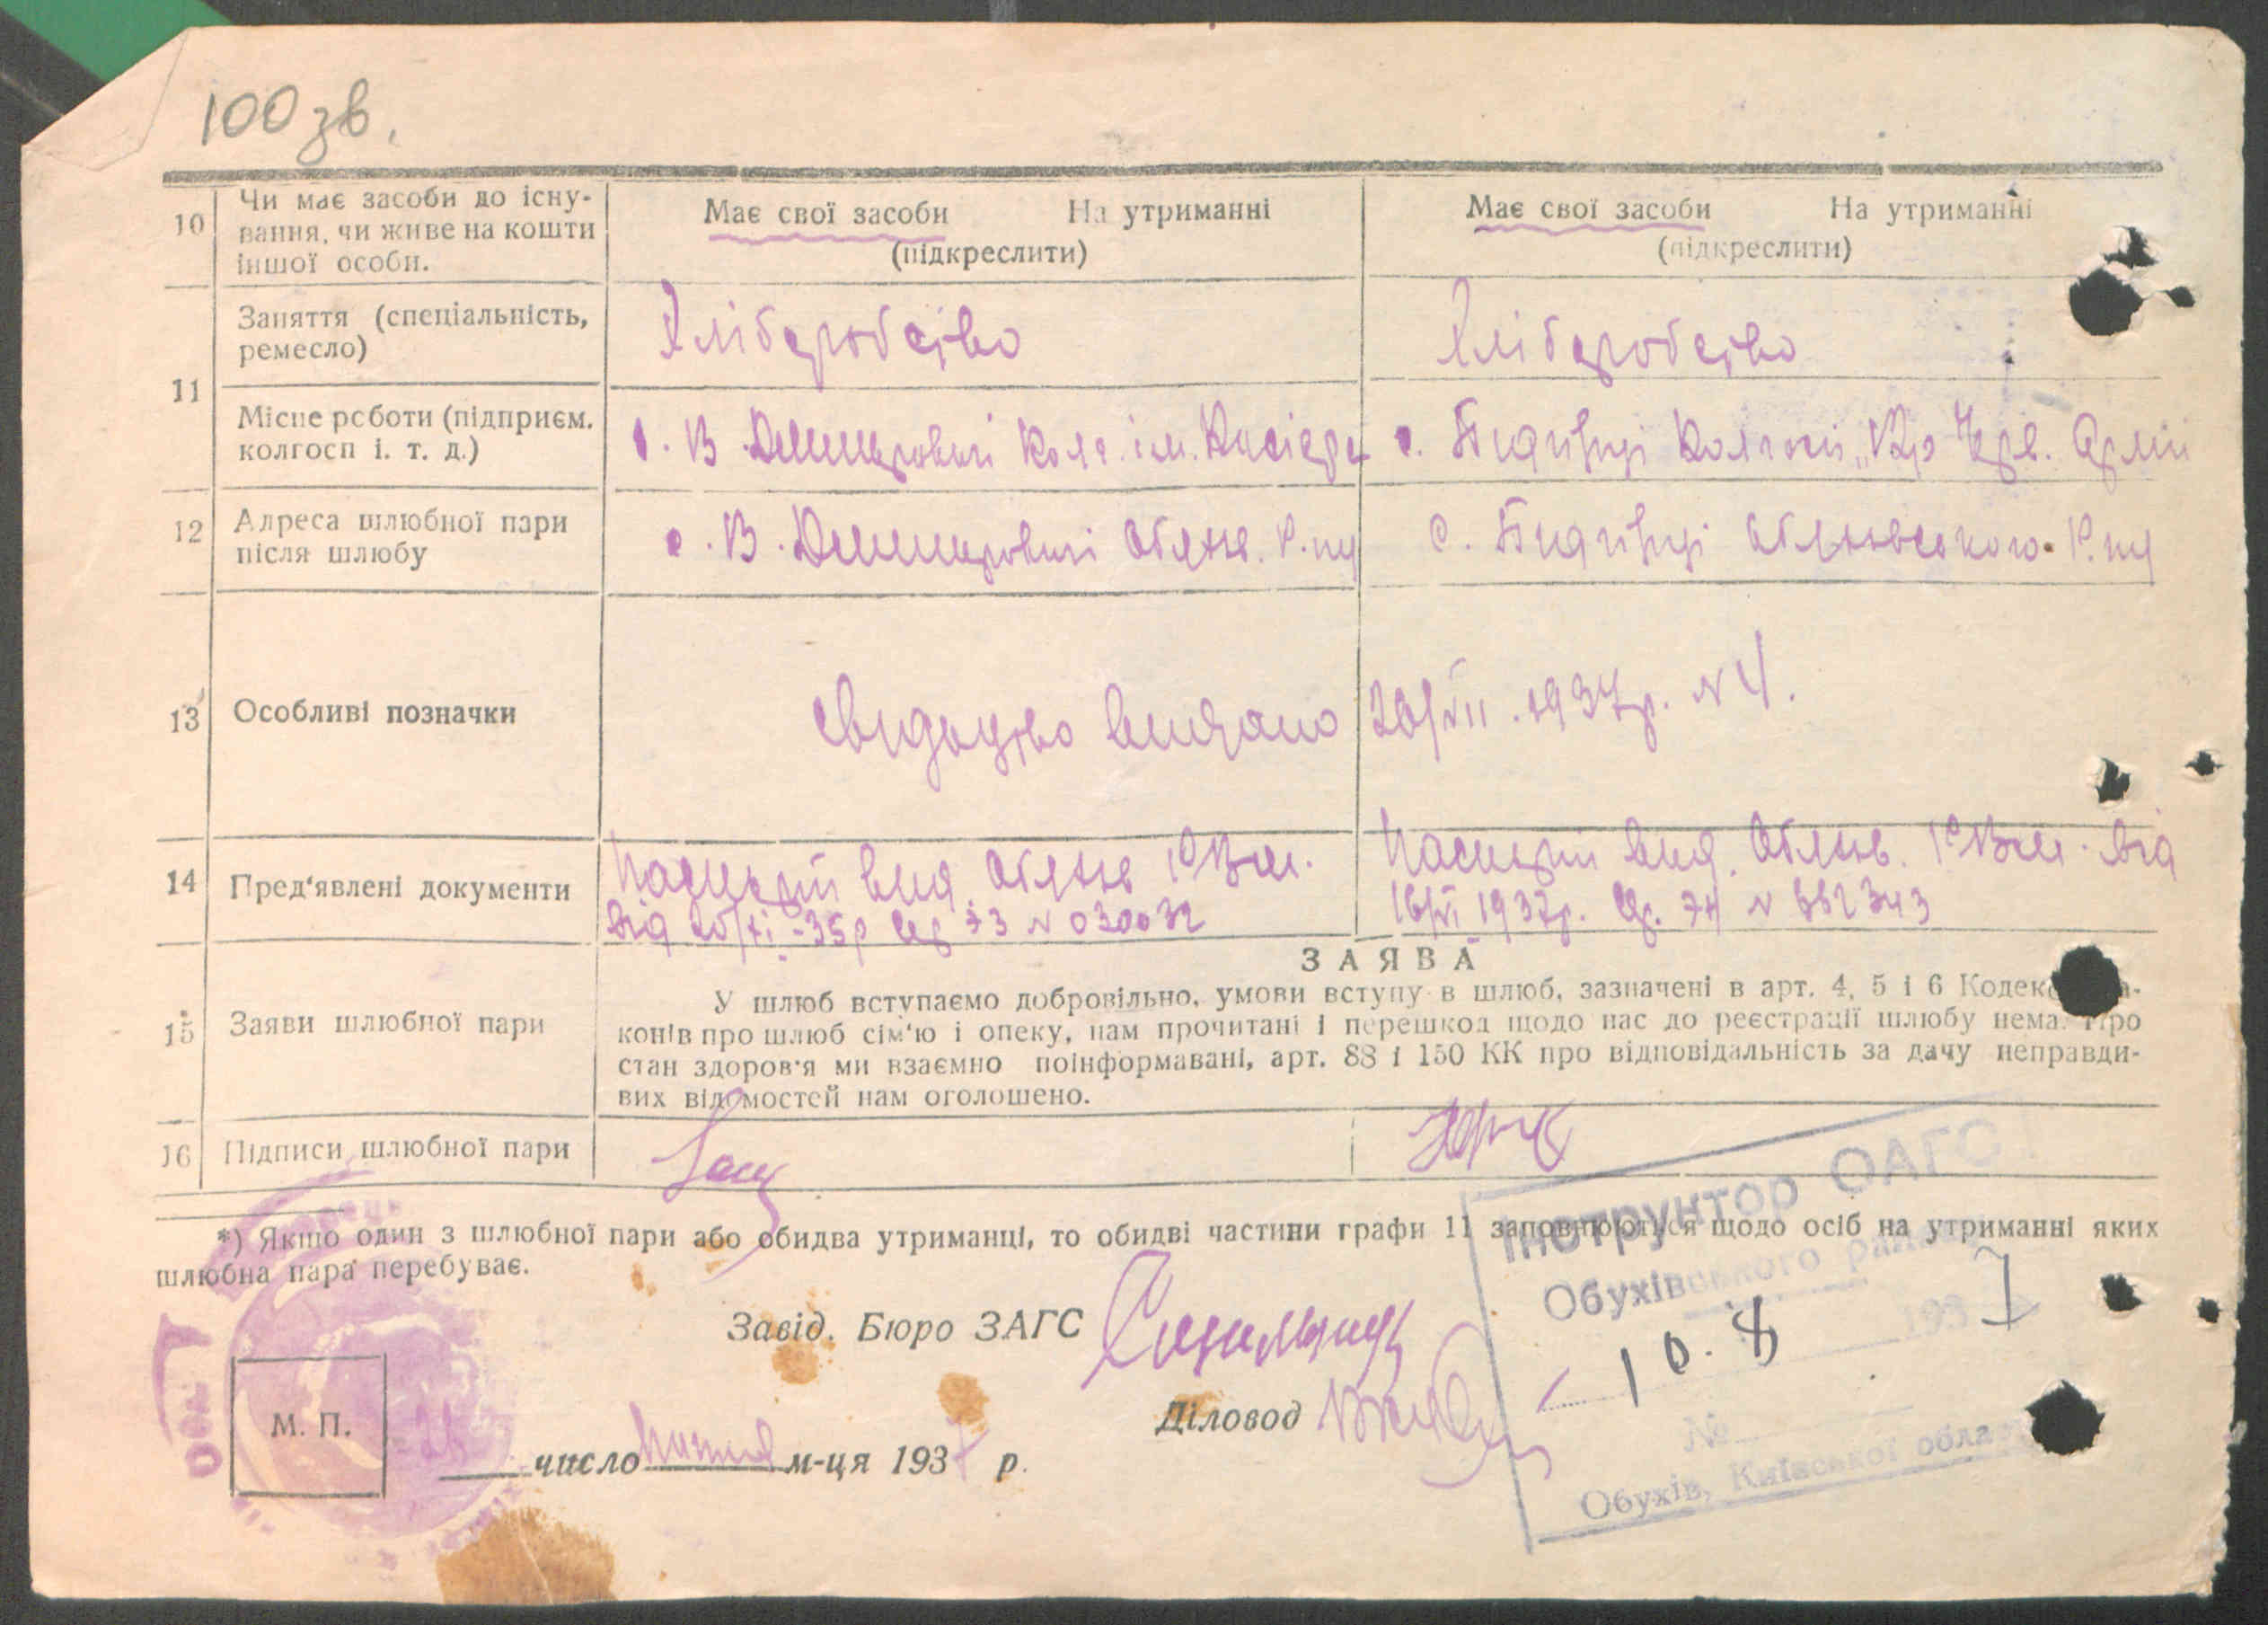 100 зв.
10 Чи має засоби до існу-
вання, чи живе на кошти
іншої особи.
Має свої засоби На утриманні
(підкреслити)
Має свої засоби На утриманні
(підкреслити)
11 Заняття (спеціальність,
ремесло)
Хліборобство
Хліборобство
Місце роботи (підприєм.
колгосп і. т. д.)
с. В. Дмитровичі Колг. ім.
с. Колгосп „ Черв. Армії
12 Адреса шлюбної пари
після шлюбу
с. В. Дмитровичі Обухів. Р-ну
с. Обухівського Р-ну
13 Особливі позначки
Свідоцтво видано 26/VII. 1937р. № 4.
14 Пред'явлені документи
Паспорт вид. Обухів РВМ.
від 20/XI -35р Сер № 030032
Паспорт вид. Обухів. РВМ. від
16/VI 1937р. Ср. № 552343
ЗАЯВА
15 Заяви шлюбної пари
У шлюб вступаємо добровільно, умови вступу в шлюб, зазначені в арт. 4, 5 і 6 Кодек а-
конів про шлюб сім'ю і опеку, нам прочитані і перешкод щодо нас до реєстрації шлюбу нема. Про
стан здоров'я ми взаємно поінформавані, арт. 88 і 150 КК про відповідальність за дачу неправди-
вих відомостей нам оголошено.
16 Підписи шлюбної пари
*) Якшо один з шлюбної пари або обидва утриманці, то обидві частини графи 11 заповнюються щодо осіб на утриманні яких
шлюбна пара перебуває.
Інструктор ОАГС
Обухівського
193 7
10. 8
№
Обухів, Київської обла
Завід. Бюро ЗАГС
Діловод
М. П.
26 число липня м-ця 1937 р.